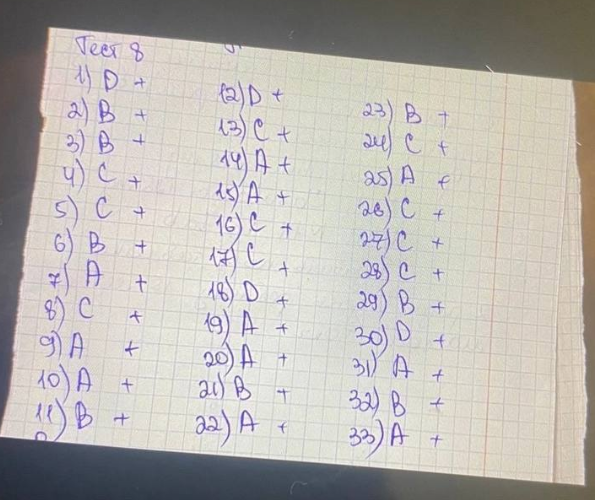 Тест 8
1) D +
2) B +
3) B +
4) C +
5) C +
6) B +
7) A +
8) C +
9) A +
10) A +
11) B +
12) D +
13) C +
14) A +
15) A +
16) C +
17) C +
18) D +
19) A +
20) A +
21) B +
22) A +
23) B +
24) C +
25) A +
26) C +
27) C +
28) C +
29) B +
30) D +
31) A +
32) B +
33) A +